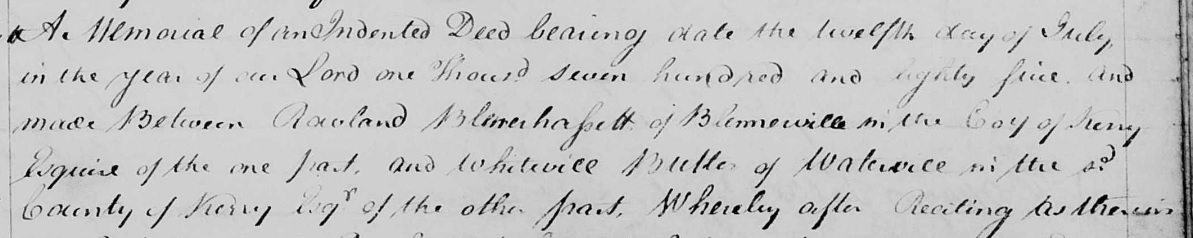 A Memorial of an Indented Deed bearing date the twelfth day of July,
in the year of our Lord one Thousd seven hundred and eighty five. and
made Between Rowland Blenerhassett of Blennerville in the Coy of Kerry
Esquire of the one part, and Whitwell Butler of Waterville in the sd
County of Kerry Esqr of the other part, Whereby after Reciting as therein